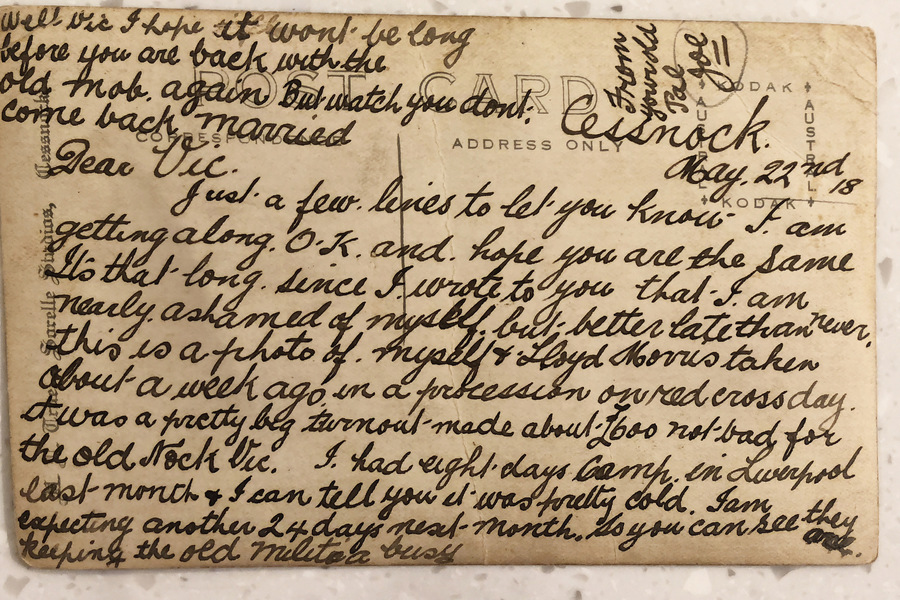 Well Vic I hope it wont be long
before you are back with the
old mob. again But watch you dont.
come back married
From
Your old
Pal
Joe
POST CARD
CORRESPONDENCE
ADDRESS ONLY
KODAK
AUSTRAL
KODAK
Cessnock.
May. 22nd 18
Dear Vic.
Just a few. lines to let you know I. am
getting along. O.K. and. hope you are the same
It's that long. since I wrote to you that I. am
nearly ashamed of myself. but better late than never.
this is a photo of. myself & Lloyd Morris taken
about a week ago, in a procession on red cross day.
it was a pretty big turnout made about £600 not bad, for
the old Nock Vic. I. had eight days Camp. in Liverpool
last month & I can tell you it was pretty cold. I am
expecting another 24 days next month. So you can see they are.
keeping the old militia busy
Sarelle Studios, Cessnock